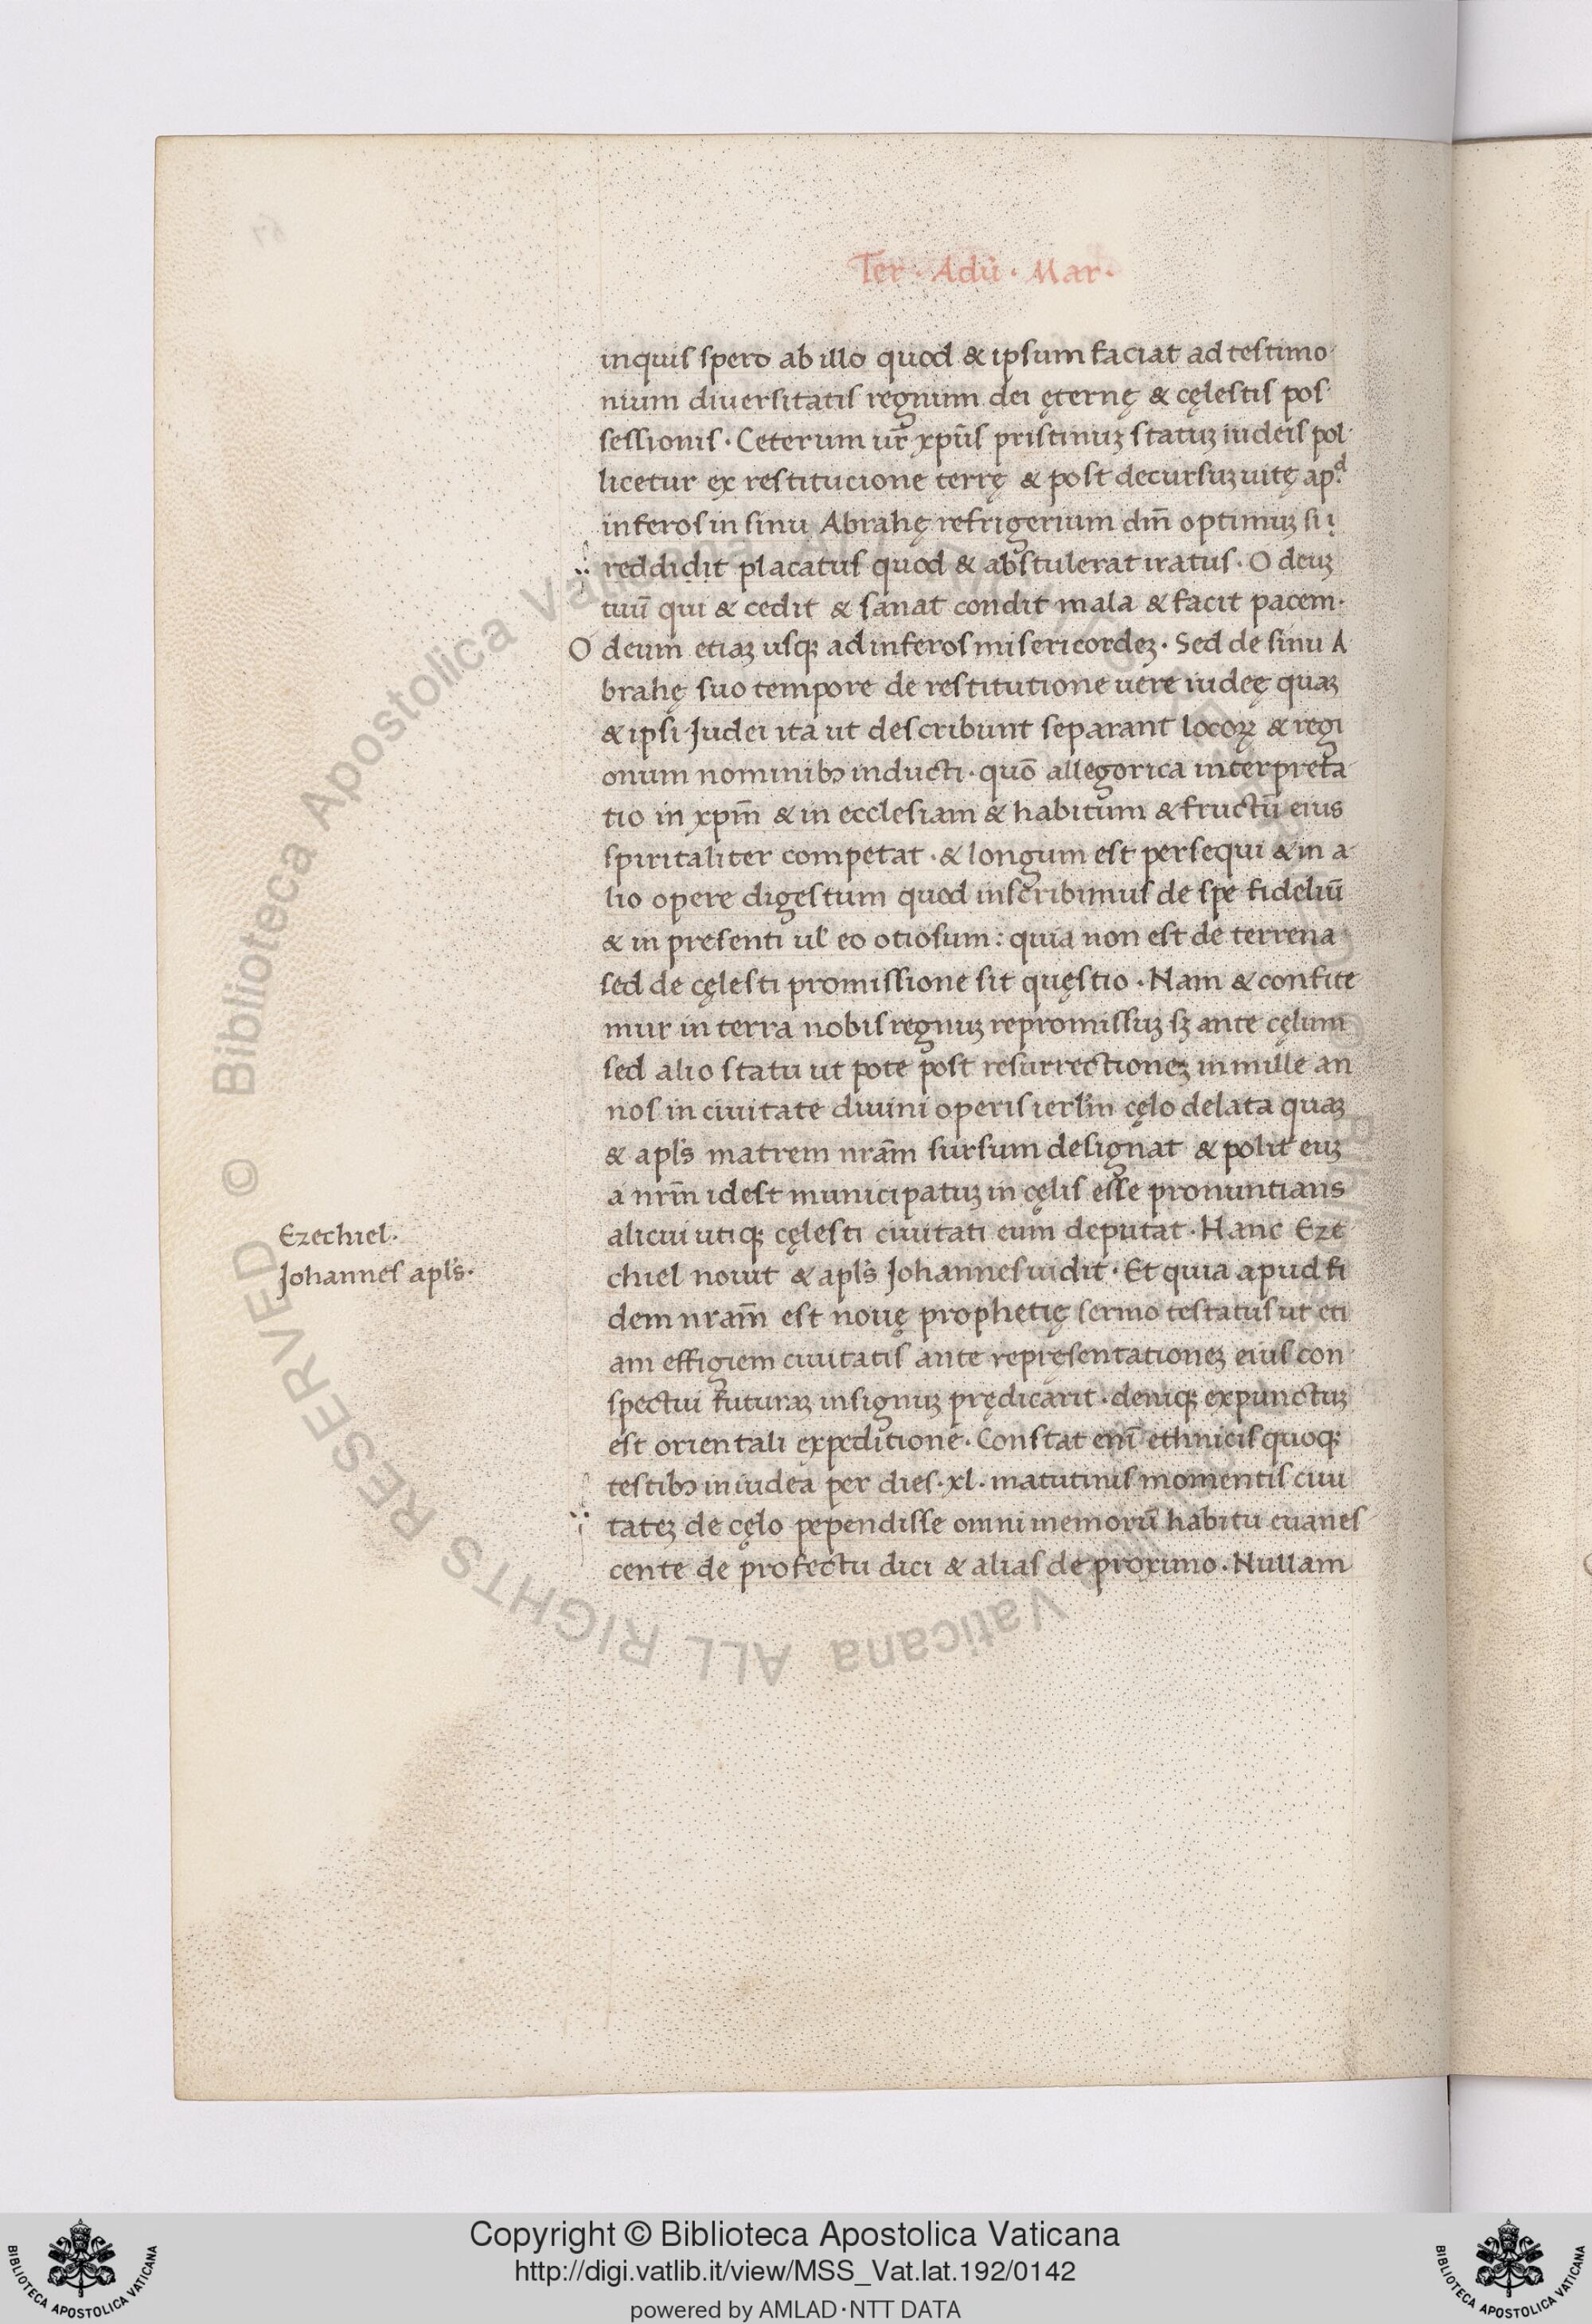 Ter · Adũ · Mar ·
inquis spero ab illo quod & ipsum faciat ad testimo
nium diuersitatis regnum dei ęternę & cęlestis pos
sessionis · Ceterum ur̃ xpũs pristinuʒ statuʒ iudeis pol
licetur ex restitucione terrę & post decursuʒ uitę apᵈ
inferos in sinu Abrahę refrigerium dm̃ optimuʒ si
reddidit placatus quod & abstulerat iratus · O deuʒ
tuũ qui & cedit & sanat condit mala & facit pacem ·
O deum etiaʒ usqʒ ad inferos misericordeʒ · Sed de sinu A
brahę suo tempore de restitutione uere iudeę quaʒ
& ipsi Judei ita ut describunt separant locoꝝ & regi
onum nominibꝫ inducti · quõ allegorica interpreta
tio in xpm̃ & in ecclesiam & habitum & fructũ eius
spiritaliter competat · & longum est persequi & in a
lio opere digestum quod inscribimus de spe fideliũ
& in presenti ul̃ eo otiosum : quia non est de terrena
sed de cęlesti promissione sit quęstio · Nam & confite
mur in terra nobis regnuʒ repromissuʒ sʒ ante cęlum
sed alio statu ut pote post resurrectioneʒ in mille an
nos in ciuitate diuini operis ierlm̃ cęlo delata quaʒ
& apl̃s matrem nrãm sursum designat & polit euʒ
a nrm̃ idest municipatuʒ in cęlis esse pronuntians
alicui utiqʒ cęlesti ciuitati eum deputat · Hanc Eze
chiel nouit & apl̃s Johannes uidit · Et quia apud fi
dem nrãm est nouę prophetię sermo testatus ut eti
am effigiem ciuitatis ante repręsentationeʒ eius con
spectui futuraʒ in signuʒ prędicarit · deniqʒ expunctuʒ
est orientali expeditione · Constat enĩ ethnicis quoqʒ
testibꝫ in iudea per dies · xl · matutinis momentis ciui
tateʒ de cęlo pependisse omni memorũ habitu euanes
cente de profectu dici & alias de proximo · Nullam
Ezechiel ·
Johannes apl̃s ·
Biblioteca Apostolica Vaticana ALL RIGHTS RESERVED ©
Copyright © Biblioteca Apostolica Vaticana
http://digi.vatlib.it/view/MSS_Vat.lat.192/0142
powered by AMLAD·NTT DATA
BIBLIOTECA APOSTOLICA VATICANA
BIBLIOTECA APOSTOLICA VATICANA